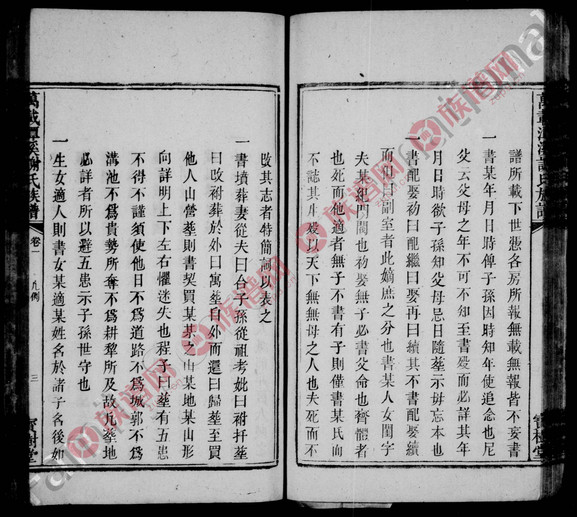 譜所載下世悉各房所報無載無報皆不妄書
一書某年月日時俾子孫因時知年使追念也凡
父云父母之年不可不知至書歿而必詳其年
月日時欲子孫知父母忌日隨塟示毋忘本也
一書配娶初曰配繼曰娶再曰續其不書配娶續
而但曰副室者此嫡庶之分也書某人女閨字
夫某紀門閥也初娶無子必書父命也齊體者
也其他適者無子不書有子則僅書某氏而
不誌其生歿以天下無無母之人也夫死而不
改其志者特簡詞以表之
一書墳葬妻從夫曰合子孫從祖考妣曰祔扦塟
曰攺祔葬於外曰寓塟自外而還曰歸塟至買
他人山營塟則書契買某某之山某地某山形
向詳明上下左右懼迷失也程子曰塟有五患
不得不謹須使他日不爲道路不爲城郭不爲
溝池不爲貴勢所奪不爲耕犂所及故凡塟地
必詳者所以避五患示子孫世守也
一生女適人則書女某適某姓名於諸子名後如
萬載潭溪謝氏族譜
卷一
凡例
三
寶樹堂
族譜网